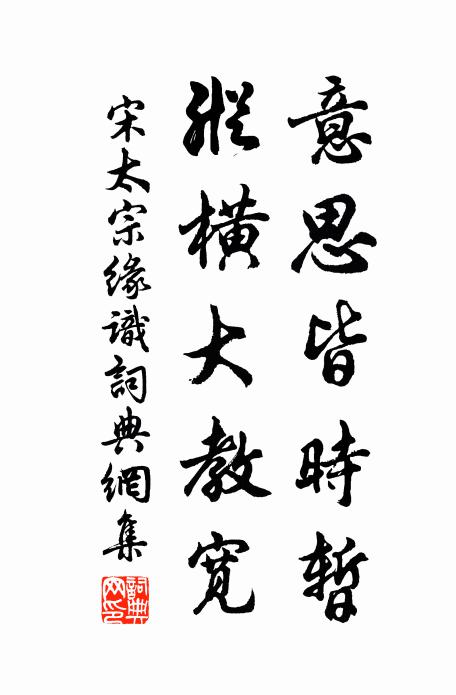 意思皆時暫
縱橫大教寬
宋太宗緣識詞典網集
詞典網印